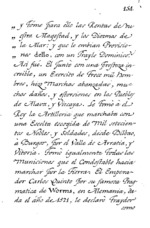 151.
y Tomo para ello las Rentas de Nu-
estra Magestad, y los Diezmos de
la Mar; y que le embian Provicio-
nes dello, con un Frayle Dominico.
Asi fue. El Junto con una Presteza in-
creible, un Exercito de Trece mil Hom-
bres, hizo Marchas abanzadas, mu-
chos daños, y aflicciones, en los Pueblos
de Alaba, y Vizcaya. Le Tomó à el
Rey la Artilleria que marchaba con
una Escolta escogida de Mil crecien-
tos Nobles, y Soldados, desde Bilbao,
à Burgos, Por el Valle de Arratia, y
Vitoria. Tomó igualmente Todas las
Municiones que el Condestable hacia
marchar por la Tierra. El Empera-
dor Carlos Quinto Por su famosa Prag-
matica de Worms, en Alemania, de-
da el año de 1521, le declaró Traydor
como